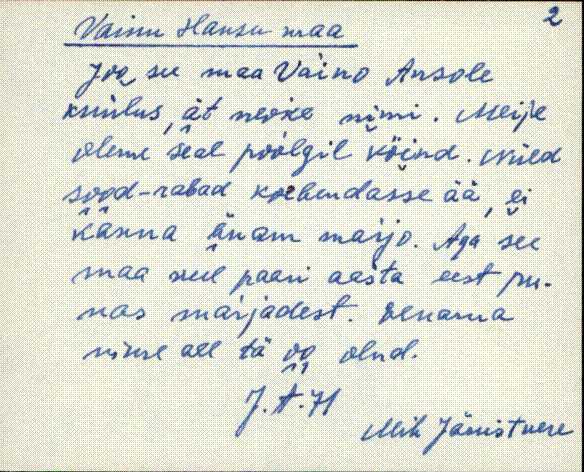 2
Vainu Hansu maa
Joo see maa Vaino Ansole
kuulus, ät neoke nimi. Meije
oleme seal poolgil köind. Nüed
sood-rabad koebendasse ää, ei
känna änam märjo. Aga see
maa uel paari aasta eest pu-
nas märjadest. Venama
nime all tä oo olnd.
J. A. H
Mih Jämistvere